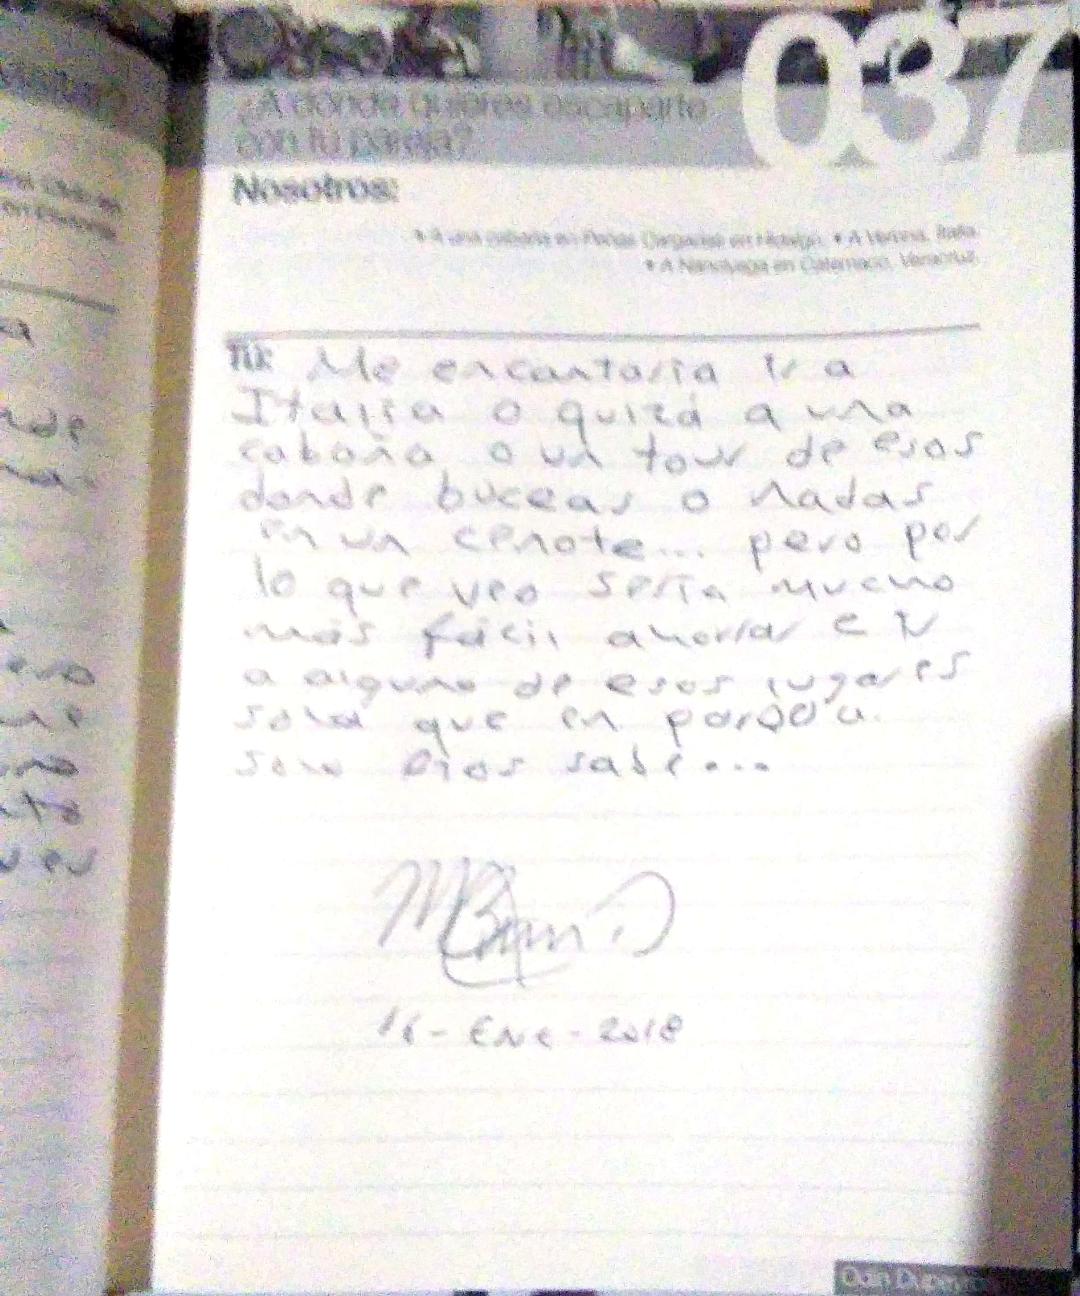 037
¿A dónde quieres escaparte
con tu pareja?
Nosotros:
• A una cabaña en Peñas Cargadas en Hidalgo. • A Verona, Italia.
• A Nanciyaga en Catemaco, Veracruz.
Tú: Me encantaría ir a
Italia o quizá a una
cabaña, o un tour de esos
donde buceas o nadas
en un cenote... pero por
lo que veo sería mucho
más fácil ahorrar e ir
a alguno de esos lugares
sola que en pareja.
Solo Dios sabe...
16-Ene-2018